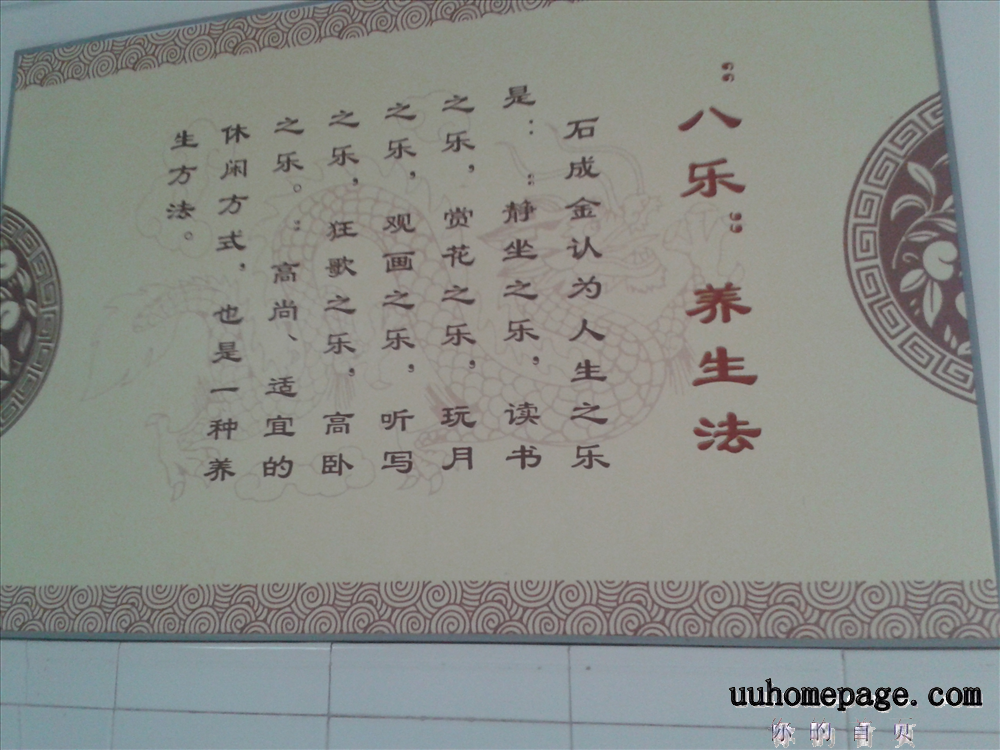 “八乐”养生法
石成金认为人生之乐
是：：静坐之乐，读书
之乐，赏花之乐，玩月
之乐，观画之乐，听写
之乐，狂歌之乐，高卧
之乐。：高尚、适宜的
休闲方式，也是一种养
生方法。
uuhomepage.com
你的首页